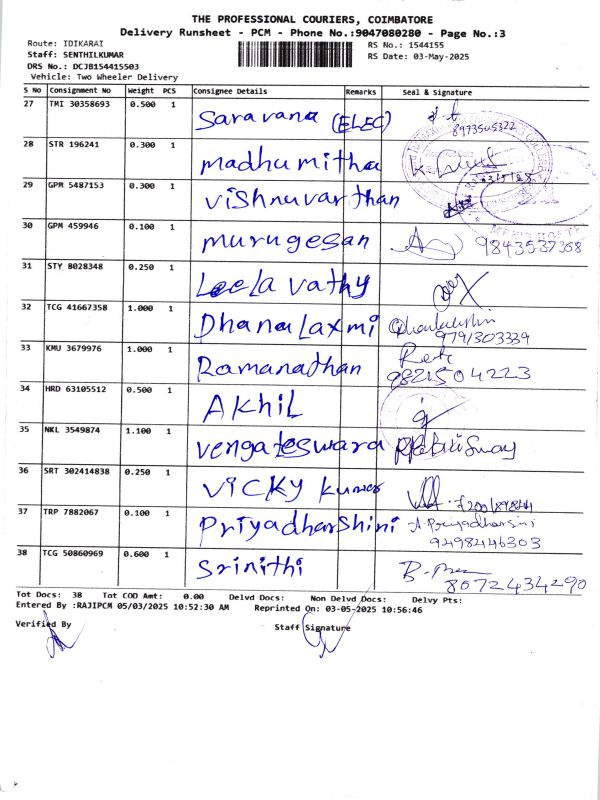 THE PROFESSIONAL COURIERS, COIMBATORE
Delivery Runsheet - PCM - Phone No.:9047080280 - Page No.:3
Route: IDIKARAI
RS No.: 1544155
Staff: SENTHILKUMAR
RS Date: 03-May-2025
DRS No.: DCJB154415503
Vehicle: Two Wheeler Delivery
S No Consignment No Weight PCS Consignee Details Remarks Seal & Signature
27 TMI 30358693 0.500 1 Saravana (ELEC)
8973505322
28 STR 196241 0.300 1 madhumitha
29 GPM 5487153 0.300 1 Vishnuvarthan
30 GPM 459946 0.100 1 murugesan 9843537368
31 STY 8028348 0.250 1 Leela vathy
32 TCG 41667358 1.000 1 Dhanalaxmi Dhanalakshmi
9791303339
33 KMU 3679976 1.000 1 Ramanathan
9821504223
34 HRD 63105512 0.500 1 AKhiL
35 NKL 3549874 1.100 1 vengateswara
36 SRT 302414838 0.250 1 VICKY kumar
37 TRP 7882067 0.100 1 Priyadharshini A.Priyadharsini
9498446303
38 TCG 50860969 0.600 1 Srinithi
8072434290
Tot Docs: 38 Tot COD Amt: 0.00 Delvd Docs: Non Delvd Docs: Delvy Pts:
Entered By :RAJIPCM 05/03/2025 10:52:30 AM Reprinted On: 03-05-2025 10:56:46
Verified By Staff Signature